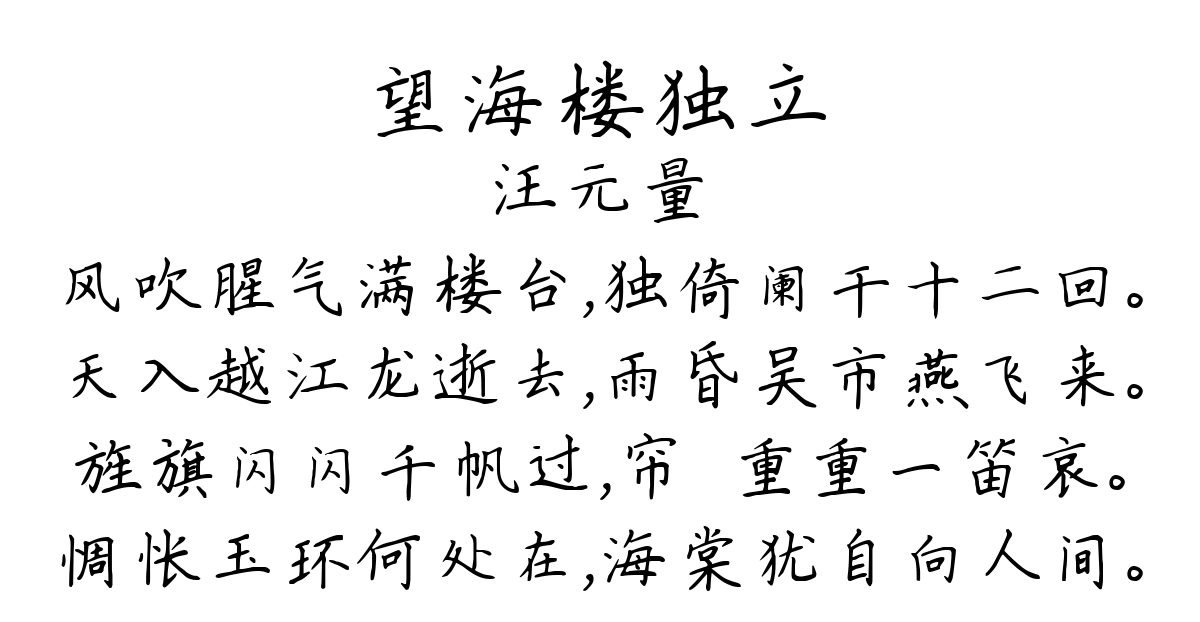 望海楼独立
汪元量
风吹腥气满楼台,独倚阑干十二回。
天入越江龙逝去,雨昏吴市燕飞来。
旌旗闪闪千帆过,帘 重重一笛哀。
惆怅玉环何处在,海棠犹自向人间。